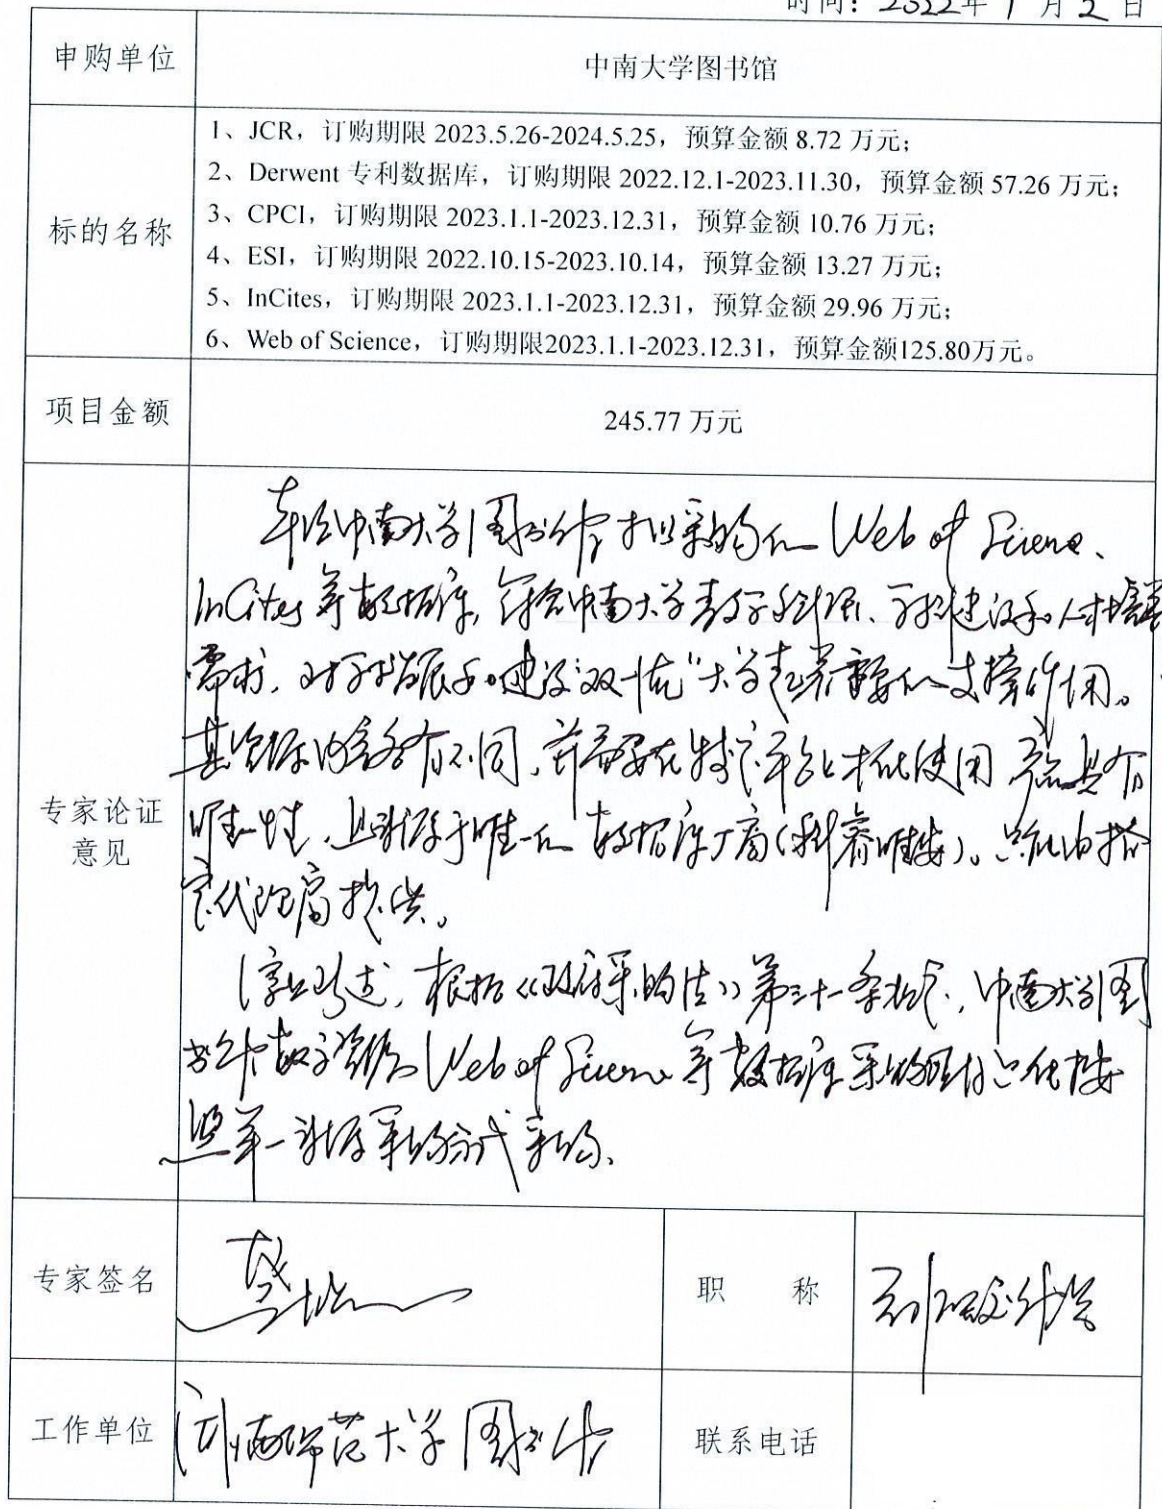 时间：2022年1月2日
申购单位
中南大学图书馆
标的名称
1、JCR，订购期限 2023.5.26-2024.5.25，预算金额 8.72 万元；
2、Derwent 专利数据库，订购期限 2022.12.1-2023.11.30，预算金额 57.26 万元；
3、CPCI，订购期限 2023.1.1-2023.12.31，预算金额 10.76 万元；
4、ESI，订购期限 2022.10.15-2023.10.14，预算金额 13.27 万元；
5、InCites，订购期限 2023.1.1-2023.12.31，预算金额 29.96 万元；
6、Web of Science，订购期限2023.1.1-2023.12.31，预算金额125.80万元。
项目金额
245.77 万元
专家论证
意见
中南大学图书馆拟采购的 Web of Science、
InCites 等数据库，符合中南大学教学科研、学科建设和人才培养
需求，对学科发展和建设"双一流"大学起着重要的支撑作用。
其资源内容各有不同，并需要在特定平台上才能使用，产品具有
唯一性，且来源于唯一的数据库厂商（科睿唯安）。只能由指
定代理商提供。
综上所述，根据《政府采购法》第三十一条规定，中南大学图
书馆数字资源 Web of Science 等数据库采购项目只能按
照单一来源采购方式采购。
专家签名
职 称
副研究馆员
工作单位
湖南师范大学图书馆
联系电话